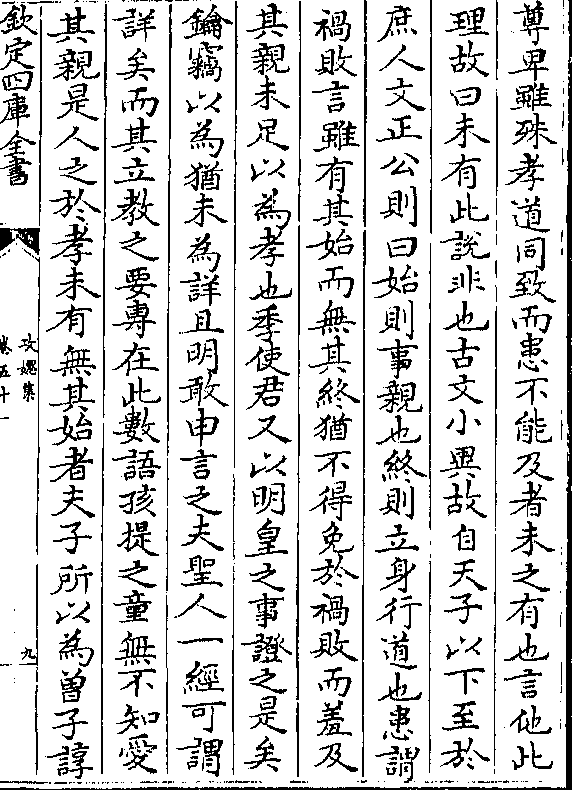 尊卑雖殊孝道同致而患不能及者未之有也言㐌此
理故曰未有此說非也古文小異故自天子以下至於
庶人文正公則曰始則事親也終則立身行道也患謂
禍敗言雖有其始而無其終猶不得免於禍敗而羞及
其親未足以為孝也季使君又以明皇之事證之是矣
鑰竊以為猶未為詳且明敢申言之夫聖人一經可謂
詳矣而其立教之要專在此數語孩提之童無不知愛
其親是人之於孝未有無其始者夫子所以為曾子諄
欽定四庫全書
攻媿集
卷五十一
九